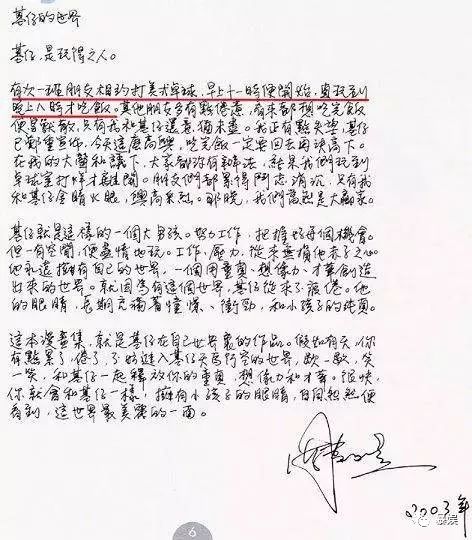 基仔的世界
基仔,是玩得之人。
有次一班朋友相約打美式桌球,早上十一時便開始,直玩到
晚上八時才吃飯。其他朋友多有點倦意,看來都想吃完飯
便各散,只有我和基仔還意猶未盡。我正有點失望,基仔
已鄭重宣佈,今天這麼高興,吃完飯一定要回去再決高下。
在我的大聲和議下,大家都沒有辦法,結果我們玩到
桌球室打烊才離開。朋友們都累得鬥志消沉,只有我
和基仔金睛火眼,興高采烈。那晚,我們當然是大贏家。
基仔就是這樣的一個大男孩。努力工作,把握好每個機會。
但一有空閒,便盡情地玩。工作,壓力,從來無損他赤子之心
他永遠擁有自己的世界,一個用童真、想像力、才華創造
出來的世界。就因為有這個世界,基仔從來不疲倦。他
的眼睛,長期充滿著憧憬、衝勁,和小孩子的純真。
這本漫畫集,就是基仔在自己世界裏的作品。假如有天,你
有點累了,倦了,不妨進入基仔天馬行空的世界,歇一歇,笑
一笑,和基仔一起釋放你的童真,想像力和才華。很快,
你就會和基仔一樣,擁有小孩子的眼睛,自自然然便
看到,這世界最美麗的一面。
2003年
6
暴娱